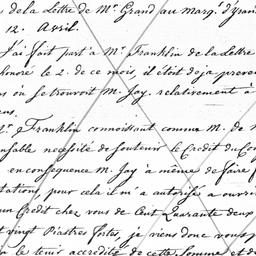 de la Lettre de Mr. Grand au Marqs. d'Yran
12. Avril.
J'ai fait part a Mr. Franklin de la Lettre
honoré le 2. de ce mois, il étoit deja preve
ou se trouvoit M. Jay, relativement à
Franklin connoissant comme M. de
necessité de soutenir le Credit du Con
en consequence M. Jay à même de faire f
tations, pour cela il m'a autorisé a ouvrir
un Credit chez vous de Cent Quarante deux
vingt Piastres fortes, je viens donc vous p
le tenir accredité de cette Somme et d